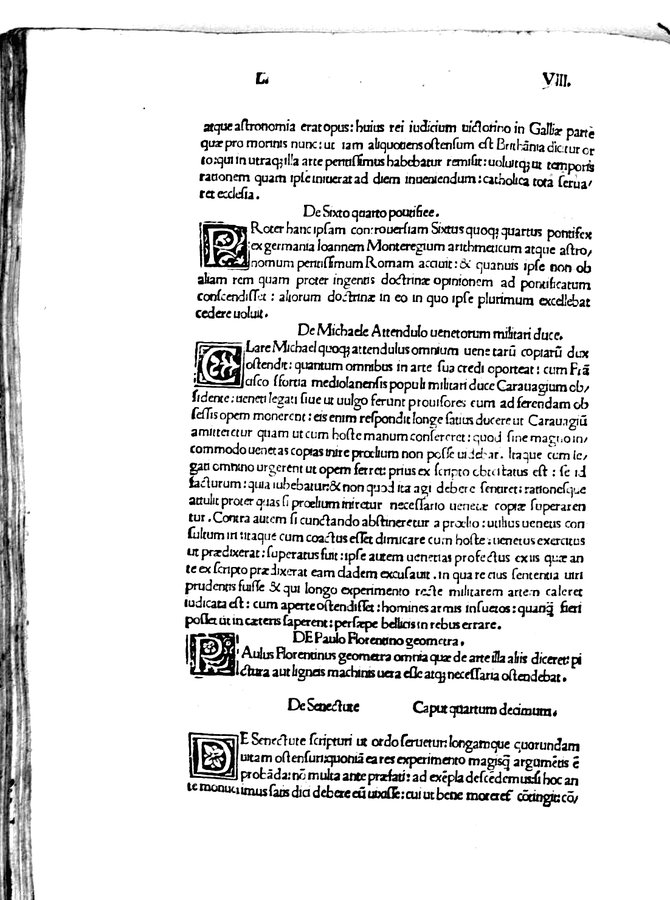 L. VIII.
atque aſtronomia erat opus: huius rei iudicium uictorino in Galliæ parte
quæ pro montis nunc: ut iam aliquotiens oſtenſum eſt Brithãnia dicitur or
to: qui in utraq; illa arte peritiſſimus habebatur remiſit: uoluitq; ut temporis
rationem quam ipſe iniuerat ad diem inueniendum: catholica tota ſerua/
ret eccleſia.
De Sixto quarto pontifice.
PRoter hanc ipſam controuerſiam Sixtus quoq; quartus pontifex
ex germania Ioannem Monteregium arithmeticum atque aſtro,
nomum peritiſſimum Romam acciuit: & quanuis ipſe non ob
aliam rem quam proter ingentis doctrinæ opinionem ad pontificatum
conſcendiſſet: aliorum doctrinæ in eo in quo ipſe plurimum excellebat
cedere uoluit.
De Michaele Attendulo uenetorum militari duce.
CLare Michael quoq; attendulus omnium uenetarũ copiarũ dux
oſtendit: quantum omnibus in arte ſua credi oporteat: cum Frã
ciſco ſfortia mediolanenſis populi militari duce Carauagium ob/
ſidente: ueneti legati ſiue ut uulgo ferunt prouiſores cum ad ferendam ob
ſeſſis opem monerent: eis enim reſpondit longe ſatius ducere ut Carauagiũ
amitteretur quam ut cum hoſte manum conſereret: quod ſine magno in/
commodo uenetas copias inire prœlium non poſſe uidebat. Itaque cum le,
gati omnino urgerent ut opem ferret: prius ex ſcripto obteſtatus eſt: ſe id
facturum: quia iubebatur: & non quod ita agi debere ſentiret: rationeſque
attulit proter quas ſi prœlium iniretur neceſſario uenetæ copiæ ſuperaren
tur. Contra autem ſi cunctando abſtineretur a prœlio: utilius uenetis con
ſultum iri: itaque cum coactus eſſet dimicare cum hoſte: uenetus exercitus
ut prædixerat: ſuperatus fuit: ipſe autem uenetias profectus ex iis quæ an
te ex ſcripto prædixerat eam cladem excuſauit. in qua re eius ſententia uiri
prudentis fuiſſe & qui longo experimento recte militarem artem caleret
iudicata eſt: cum aperte oſtendiſſet: homines armis inſuetos: quanq̃ fieri
poſſet ut in cæteris ſaperent: perſæpe bellicis in rebus errare.
DE Paulo Florentino geometra.
PAulus Florentinus geometra omnia quæ de arte illa aliis diceret: pi
ctura aut ligneis machinis uera eſſe atq; neceſſaria oſtendebat.
De Senectute Caput quartum decimum.
DE Senectute ſcripturi ut ordo ſeruetur: longamque quorundam
uitam oſtenſuri: quoniã ea res experimento magisq̃ argumẽtis ẽ
probãda: nõ multa ante præfati: ad exẽpla deſcẽdemus: ſi hoc an
te monuerimus ſatis dici debere eũ uixiſſe: cui ut bene moreret̃ cõtingit: cõ/